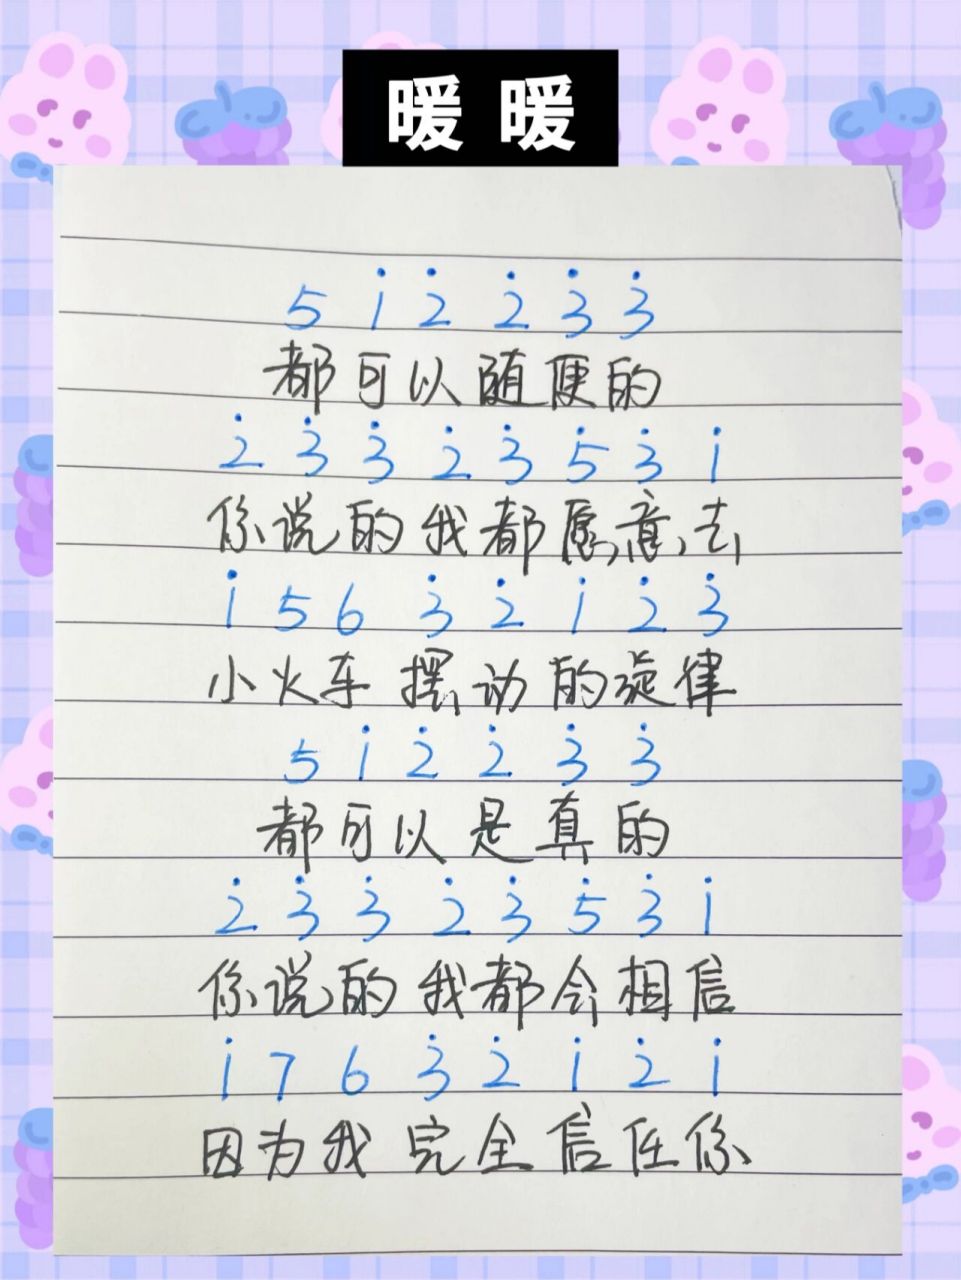 暖暖
5 1̇ 2̇ 2̇ 3̇ 3̇
都可以随便的
2̇ 3̇ 3̇ 2̇ 3̇ 5̇ 3̇ 1̇
你说的我都愿意去
1̇ 5 6 3̇ 2̇ 1̇ 2̇ 3̇
小火车摆动的旋律
5 1̇ 2̇ 2̇ 3̇ 3̇
都可以是真的
2̇ 3̇ 3̇ 2̇ 3̇ 5̇ 3̇ 1̇
你说的我都会相信
1̇ 7 6 3̇ 2̇ 1̇ 2̇ 1̇
因为我完全信任你